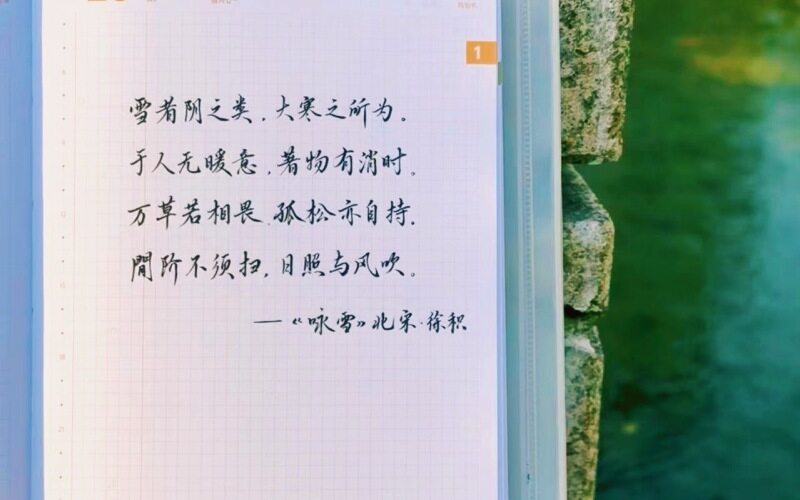 1
雪者阴之类,大寒之所为。
于人无暖意,著物有消时。
万草若相畏,孤松亦自持。
閒阶不须扫,日照与风吹。
—《咏雪》北宋·徐积